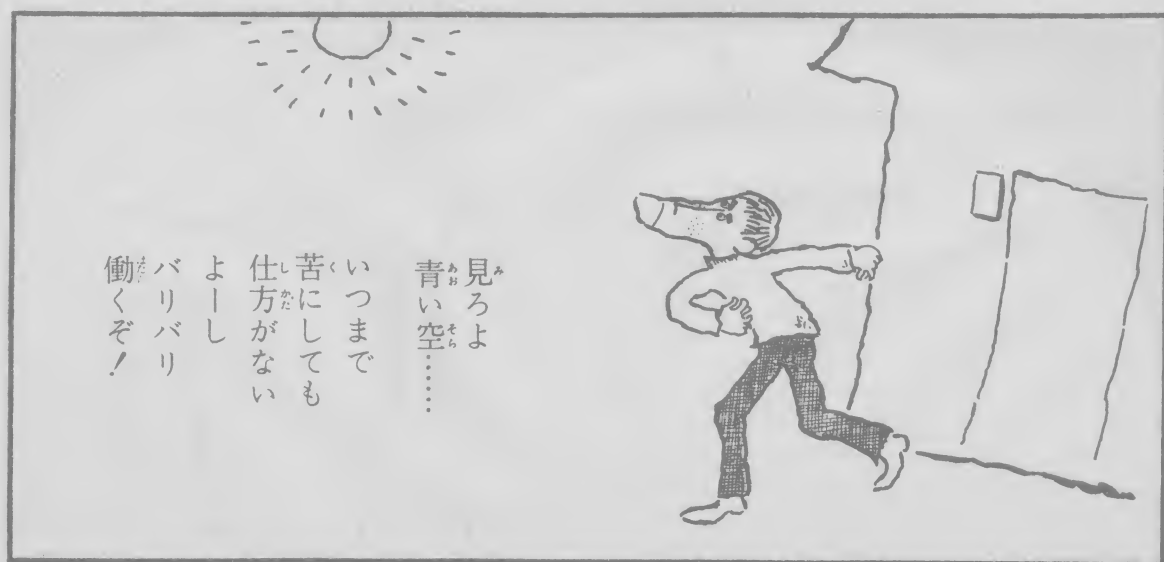 見ろよ
青い空……
いつまで
苦にしても
仕方がない
よーし
バリバリ
働くぞ！